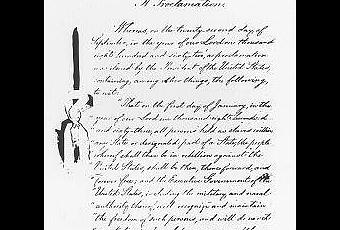 A Proclamation.
Whereas, on the twenty-second day of
September, in the year of our Lord one thousand
eight hundred and sixty-two, a proclamation
was issued by the President of the United States,
containing, among other things, the following,
to wit:
"That on the first day of January, in the
year of our Lord one thousand eight hundred
and sixty-three, all persons held as slaves within
any State or designated part of a State, the people
whereof shall then be in rebellion against the
United States, shall be then, thenceforward, and
forever free; and the Executive Government of the
United States, including the military and naval
authority thereof, will recognize and maintain
the freedom of such persons, and will do no act